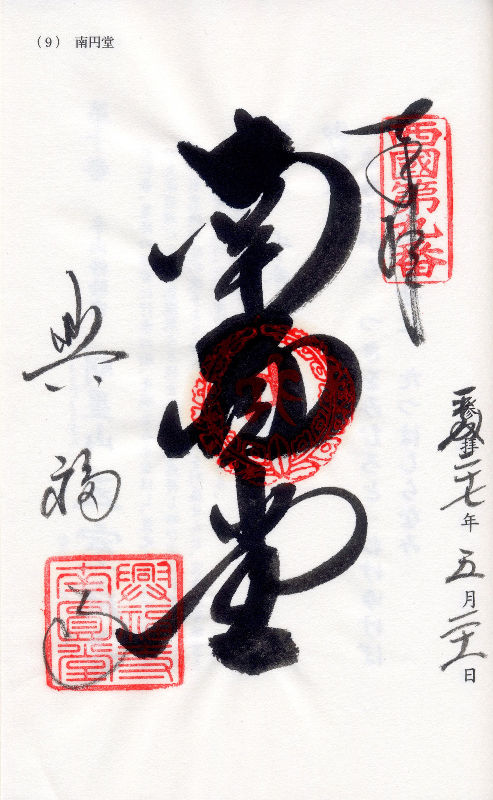 (9) 南円堂
奉拝
西國第九番
南円堂
参拝 二十七年 五月 二十一日
興福寺
興福寺
南円堂